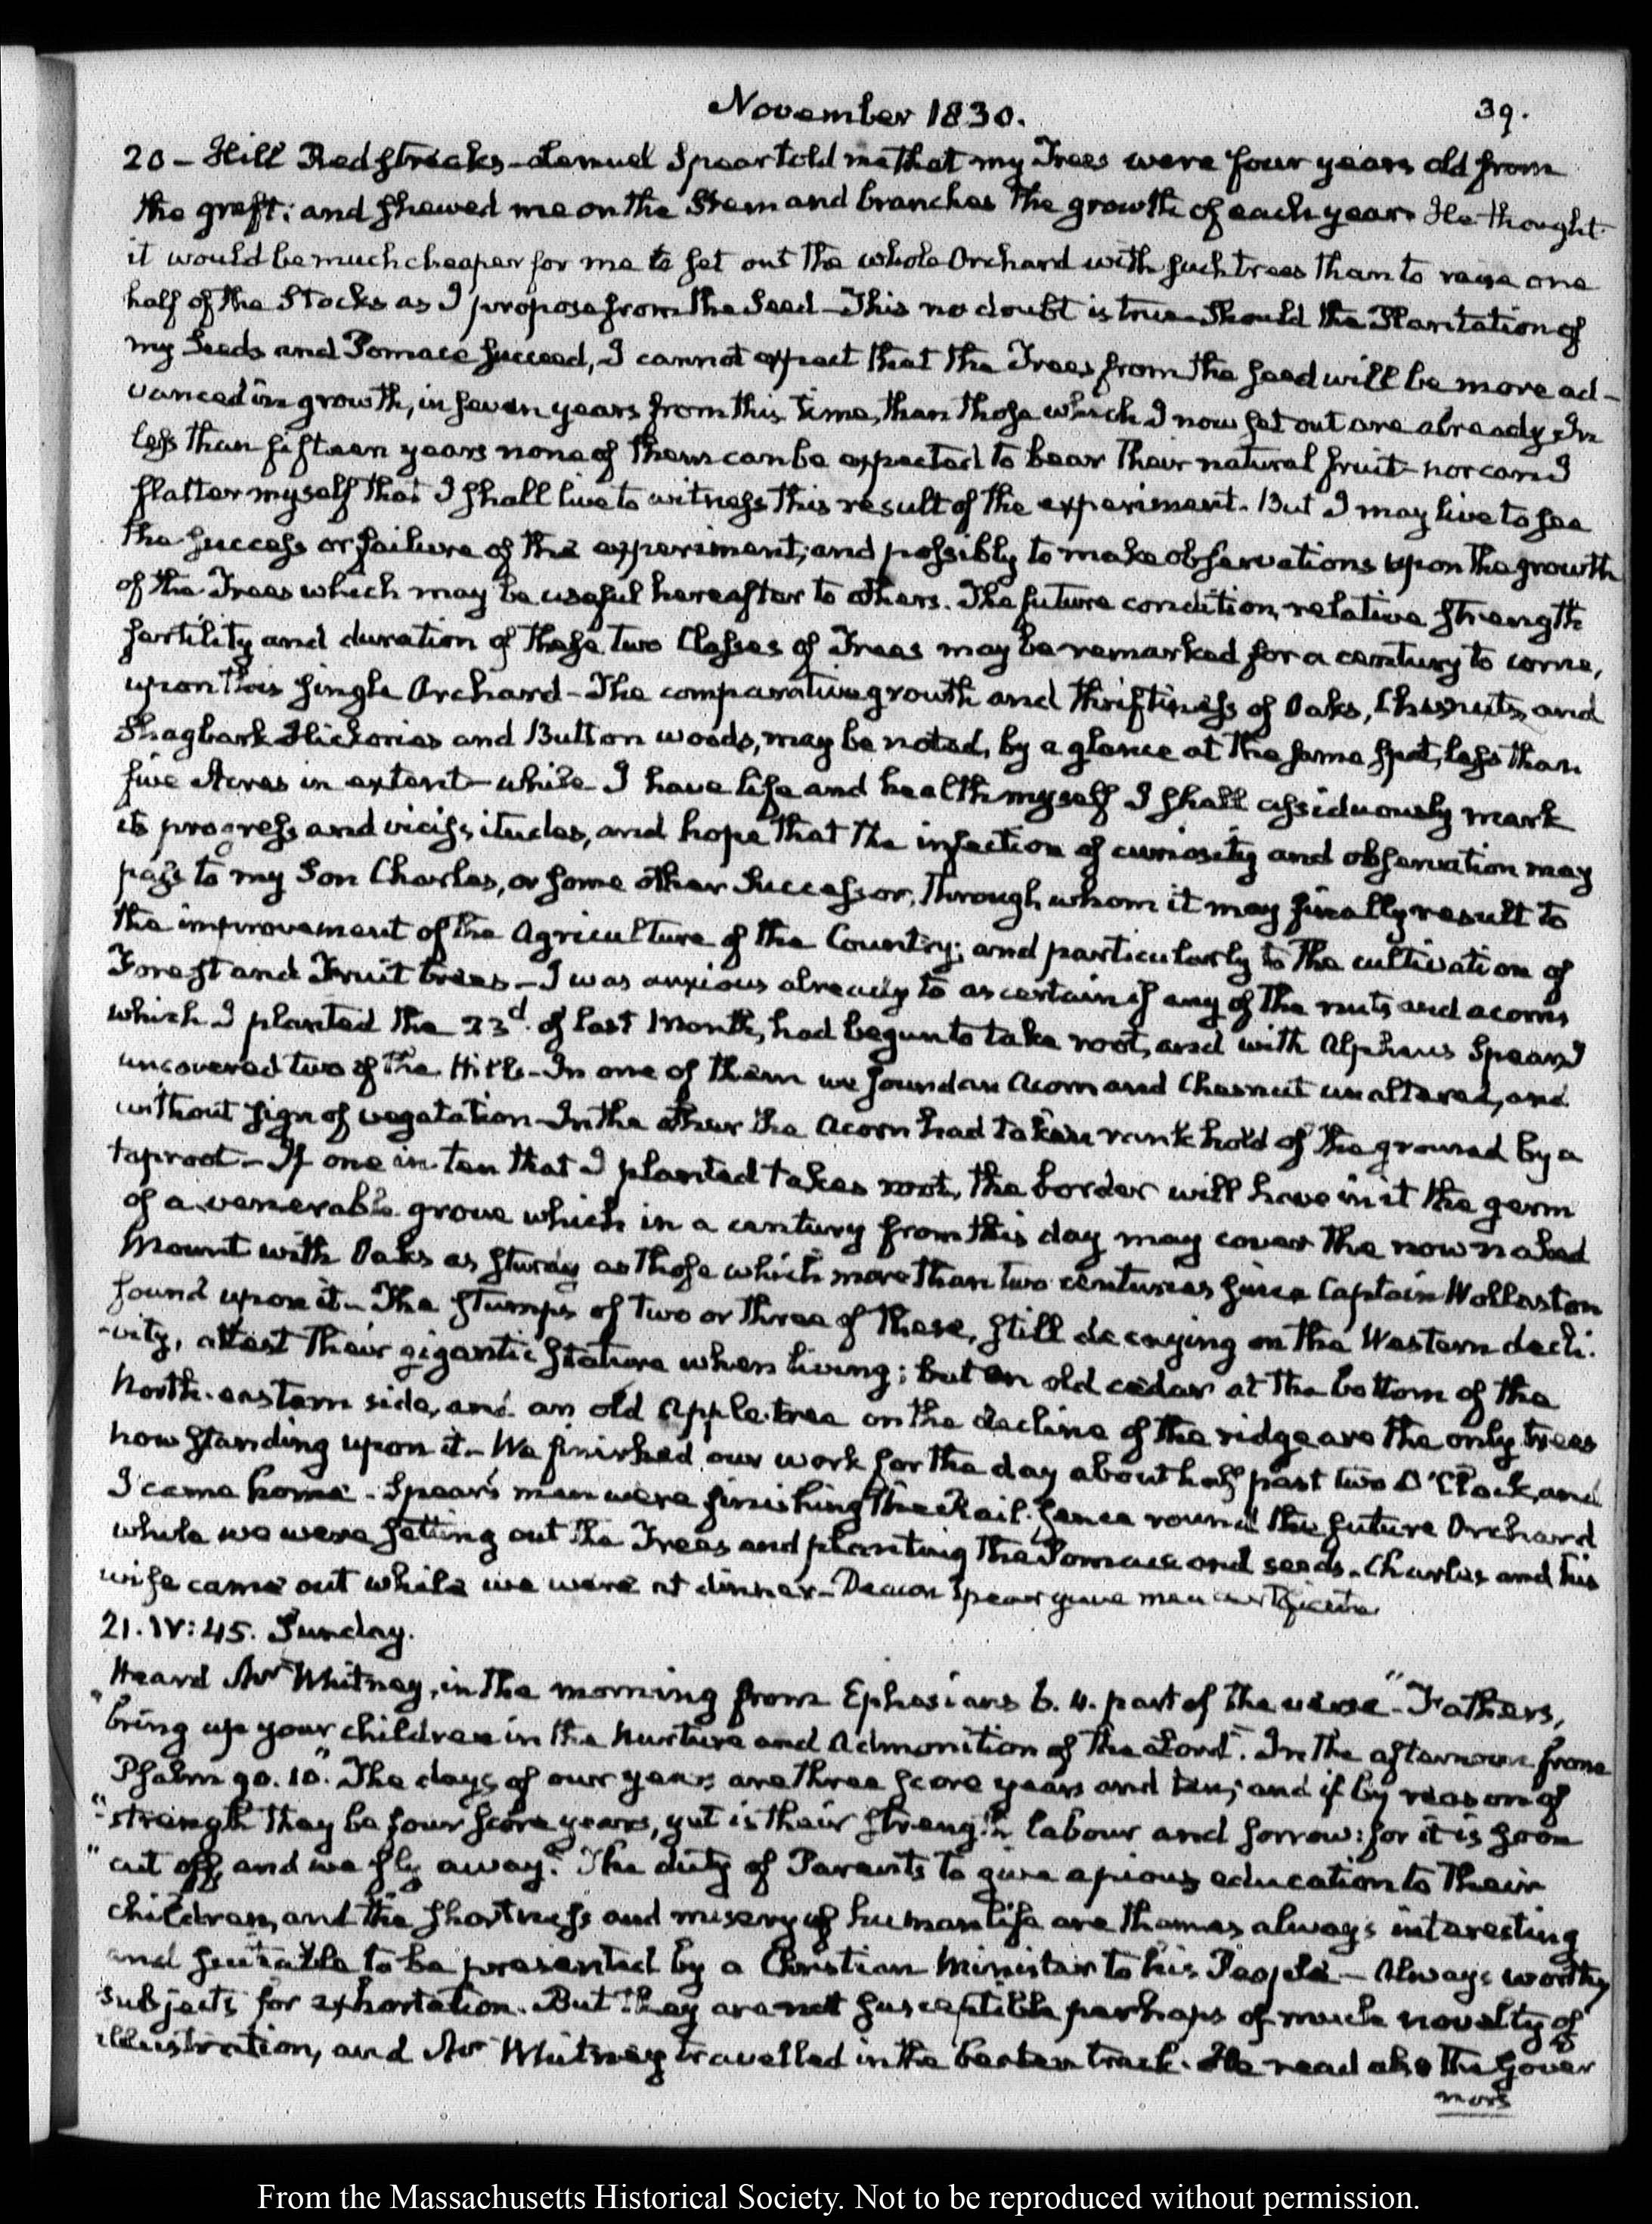 November 1830. 39.
20 – Hill Redstreaks – Lemuel Spear told me that my Trees were four years old from
the graft; and shewed me on the Stem and branches the growth of each year. He thought
it would be much cheaper for me to set out the whole Orchard with such trees than to raise one
half of the Stocks as I propose from the Seed – This no doubt is true – Should the Plantation of
my Seeds and Pomace succeed, I cannot expect that the Trees from the seed will be more ad-
vanced in growth, in seven years from this time, than those which I now set out are already. In
less than fifteen years none of them can be expected to bear their natural fruit – nor can I
flatter myself that I shall live to witness this result of the experiment. But I may live to see
the success or failure of the experiment; and possibly to make observations upon the growth
of the Trees which may be useful hereafter to others. The future condition, relative strength
fertility and duration of these two Classes of Trees may be remarked for a century to come,
upon this single Orchard – The comparative growth and thriftiness of Oaks, Chesnuts, and
Shagbark Hickories and Button woods, may be noted, by a glance at the same spot, less than
five Acres in extent – while I have life and health myself I shall assiduously mark
its progress and vicissitudes, and hope that the infection of curiosity and observation may
pass to my Son Charles, or some other Successor, through whom it may finally result to
the improvement of the Agriculture of the Country; and particularly to the cultivation of
Forest and Fruit trees – I was anxious already to ascertain if any of the nuts and acorns
which I planted the 23d. of last Month, had begun to take root, and with Alpheus Spear, I
uncovered two of the Hills – In one of them we found an Acorn and Chesnut unaltered, and
without sign of vegetation – In the other the Acorn had taken rank hold of the ground by a
taproot – If one in ten that I planted takes root, the border will have in it the germ
of a venerable grove which in a century from this day may cover the now naked
Mount with Oaks as sturdy as those which more than two centuries since Captain Wollaston
found upon it – The stumps of two or three of these, still decaying on the Western decli-
-vity, attest their gigantic stature when living; but an old cedar at the bottom of the
North-eastern side, and an old Apple-tree on the decline of the ridge are the only trees
now standing upon it – We finished our work for the day about half past two O'Clock, and
I came home – Spear's men were finishing the Rail-fence round the future Orchard
while we were setting out the Trees and planting the Pomace and seeds. Charles and his
wife came out while we were at dinner – Deacon Spear gave me a certificate
21. IV:45. Sunday.
Heard Mr Whitney, in the morning from Ephesians 6. 4. part of the verse "Fathers,
"bring up your children in the nurture and admonition of the Lord". In the afternoon from
Psalm 90. 10. "The days of our years are three score years and ten; and if by reason of
"strength they be four score years, yet is their strength labour and sorrow: for it is soon
"cut off, and we fly away". The duty of Parents to give a pious education to their
children, and the shortness and misery of human life are themes always interesting
and suitable to be presented by a Christian Minister to his People – Always worthy
subjects for exhortation. But they are not susceptible perhaps of much novelty of
illustration, and Mr Whitney travelled in the beaten track. He read also the Gover
nors
From the Massachusetts Historical Society. Not to be reproduced without permission.